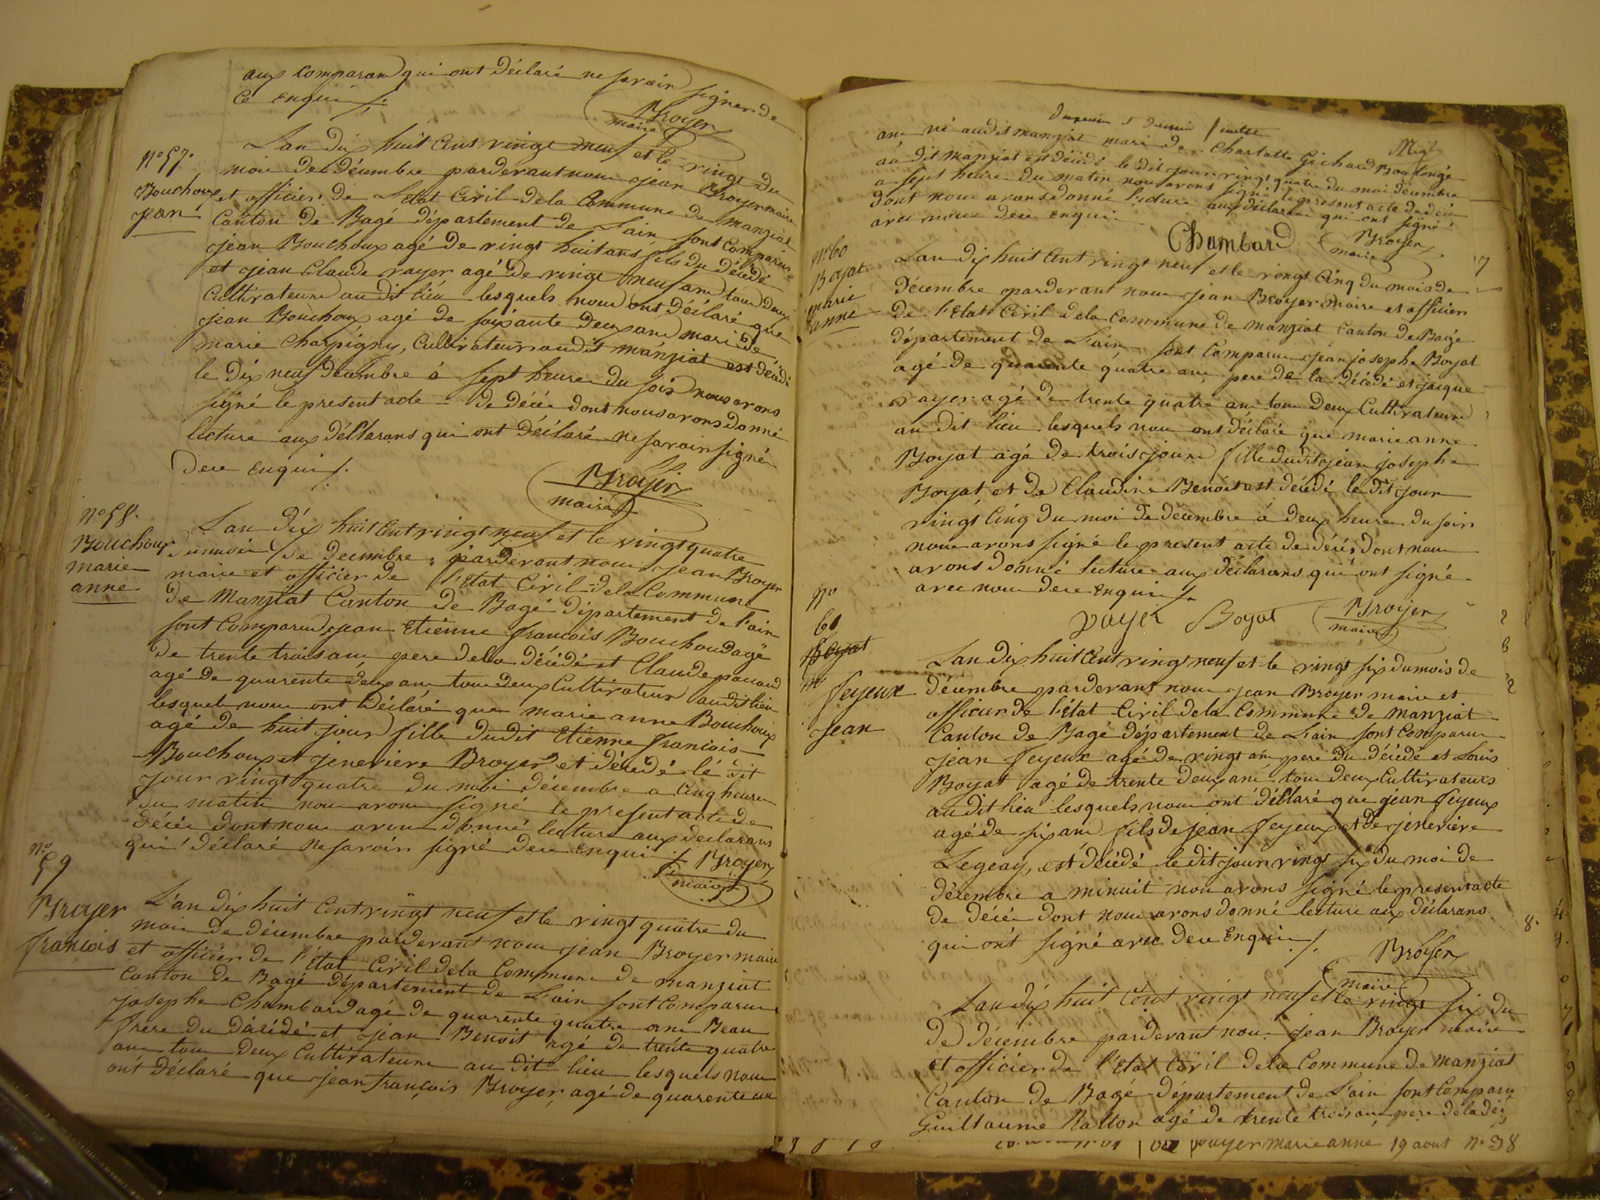 aux comparans qui ont déclaré ne savoir signer de
ce enquis ./.
Broyer
maire
N° 57.
Bouchoux
jean
L'an dix huit cent vingt neuf et le vingt du
mois de décembre pardevant nous jean Broyer maire
et officier de l'Etat Civil de la Commune de manziat
Canton de Bagé département de l'ain sont comparus
jean Bouchoux agé de vingt huit ans fils du décédé
et jean Claude rayer agé de vingt neuf ans tous deux
Cultivateurs au dit lieu lesquels nous ont déclaré que
jean Bouchoux agé de soixante deux ans mari de
marie Charpigny, Cultivateur audit manziat est décédé
le dix neuf décembre à sept heure du soir nous avons
signé le present acte de décée dont nous avons donné
lecture aux déclarans qui ont déclaré ne savoir signé
dece enquis ./.
Broyer
maire
N° 58.
Bouchoux
marie
anne
L'an dix huit cent vingt neuf et le vingt quatre
du mois de decembre, pardevant nous jean Broyer
maire et officier de l'Etat Civil de la Commune
de Manziat Canton de Bagé département de l'ain
sont comparus jean Etienne françois Bouchoud agé
de trente trois ans pere de la décédé et Claude
agé de quarente deux ans tous deux Cultivateur audit lieu
lesquels nous ont déclaré que marie anne Bouchoux
agé de huit jour fille dudit Etienne françois
Bouchoux et jeneviere Broyer et décédé le dit
jour vingt quatre du moi décembre a cinq heures
du matin nous avons signé le present acte de
décée dont nous avons donné lecture aux declarans
qui déclaré ne savoir signé dece enquis ./.
Broyer
maire
N°
59
Broyer
françois
L'an dix huit cent vingt neuf et le vingt quatre du
mois de decembre pardevant nous jean Broyer maire
et officier de l'état Civil de la Commune de manziat
Canton de Bagé département de l'ain sont comparus
josephe Chambard agé de quarente quatre ans Beau
frere du décédé et jean Benoit agé de trente quatre
ans tous deux Cultivateurs au dit lieu lesquels nous
ont déclaré que jean françois Broyer, agé de quarente
ans né audit manziat mari de Charlotte Gichard
au dit manziat est décédé le dit jour vingt quatre du moi décembre
a sept heure du matin nous avons signé le present acte de décée
dont nous avons donné lecture aux déclarans qui ont signé
avec nous dece enquis
Chambard
Broyer
maire
N° 60
Boyat
marie
anne
L'an dix huit cent vingt neuf et le vingt cinq du mois de
décembre pardevant nous jean Broyer maire et officier
de l'Etat Civil de la Commune de manziat Canton de Bagé
département de l'ain sont Comparus jean josephe Boyat
agé de quarente quatre ans pere de la décédé et jacque
rayer agé de trente quatre ans tous deux Cultivateurs
au dit lieu lesquels nous ont déclaré que marie anne
Boyat agé de trois jours fille dudit jean josephe
Boyat et de Claudine Benoit est décédé le dit jour
vingt cinq du moi de décembre à deux heures du soir
nous avons signé le present acte de décés dont nous
avons donné lecture aux déclarans qui ont signé
avec nous dece enquis ./.
Boyat
Broyer
maire
N°
61
feyeux
jean
L'an dix huit cent vingt neuf et le vingt six du mois de
décembre pardevant nous jean Broyer maire et
officier de l'état Civil de la Commune de manziat
Canton de Bagé département de l'ain sont Comparus
jean feyeux agé de vingt ans pere du décédé et Louis
Boyat agé de trente deux ans tous deux Cultivateurs
audit lieu lesquels nous ont déclaré que jean feyeux
agé de six ans fils de jean feyeux et de jeneviere
Legeay, est décédé le dit jour vingt six du moi de
décembre a minuit nous avons signé le present acte
de décé dont nous avons donné lecture aux déclarans
qui ont signé avec dece Enquis ./.
Broyer
maire
L'an dix huit cent vingt neuf et le vingt six du
de décembre pardevant nous jean Broyer maire
et officier de l'Etat Civil de la Commune de manziat
Canton de Bagé département de l'ain sont Comparu
Guillaume Ratton agé de trente trois ans pere de la
payer marie anne 19 aout N° 38